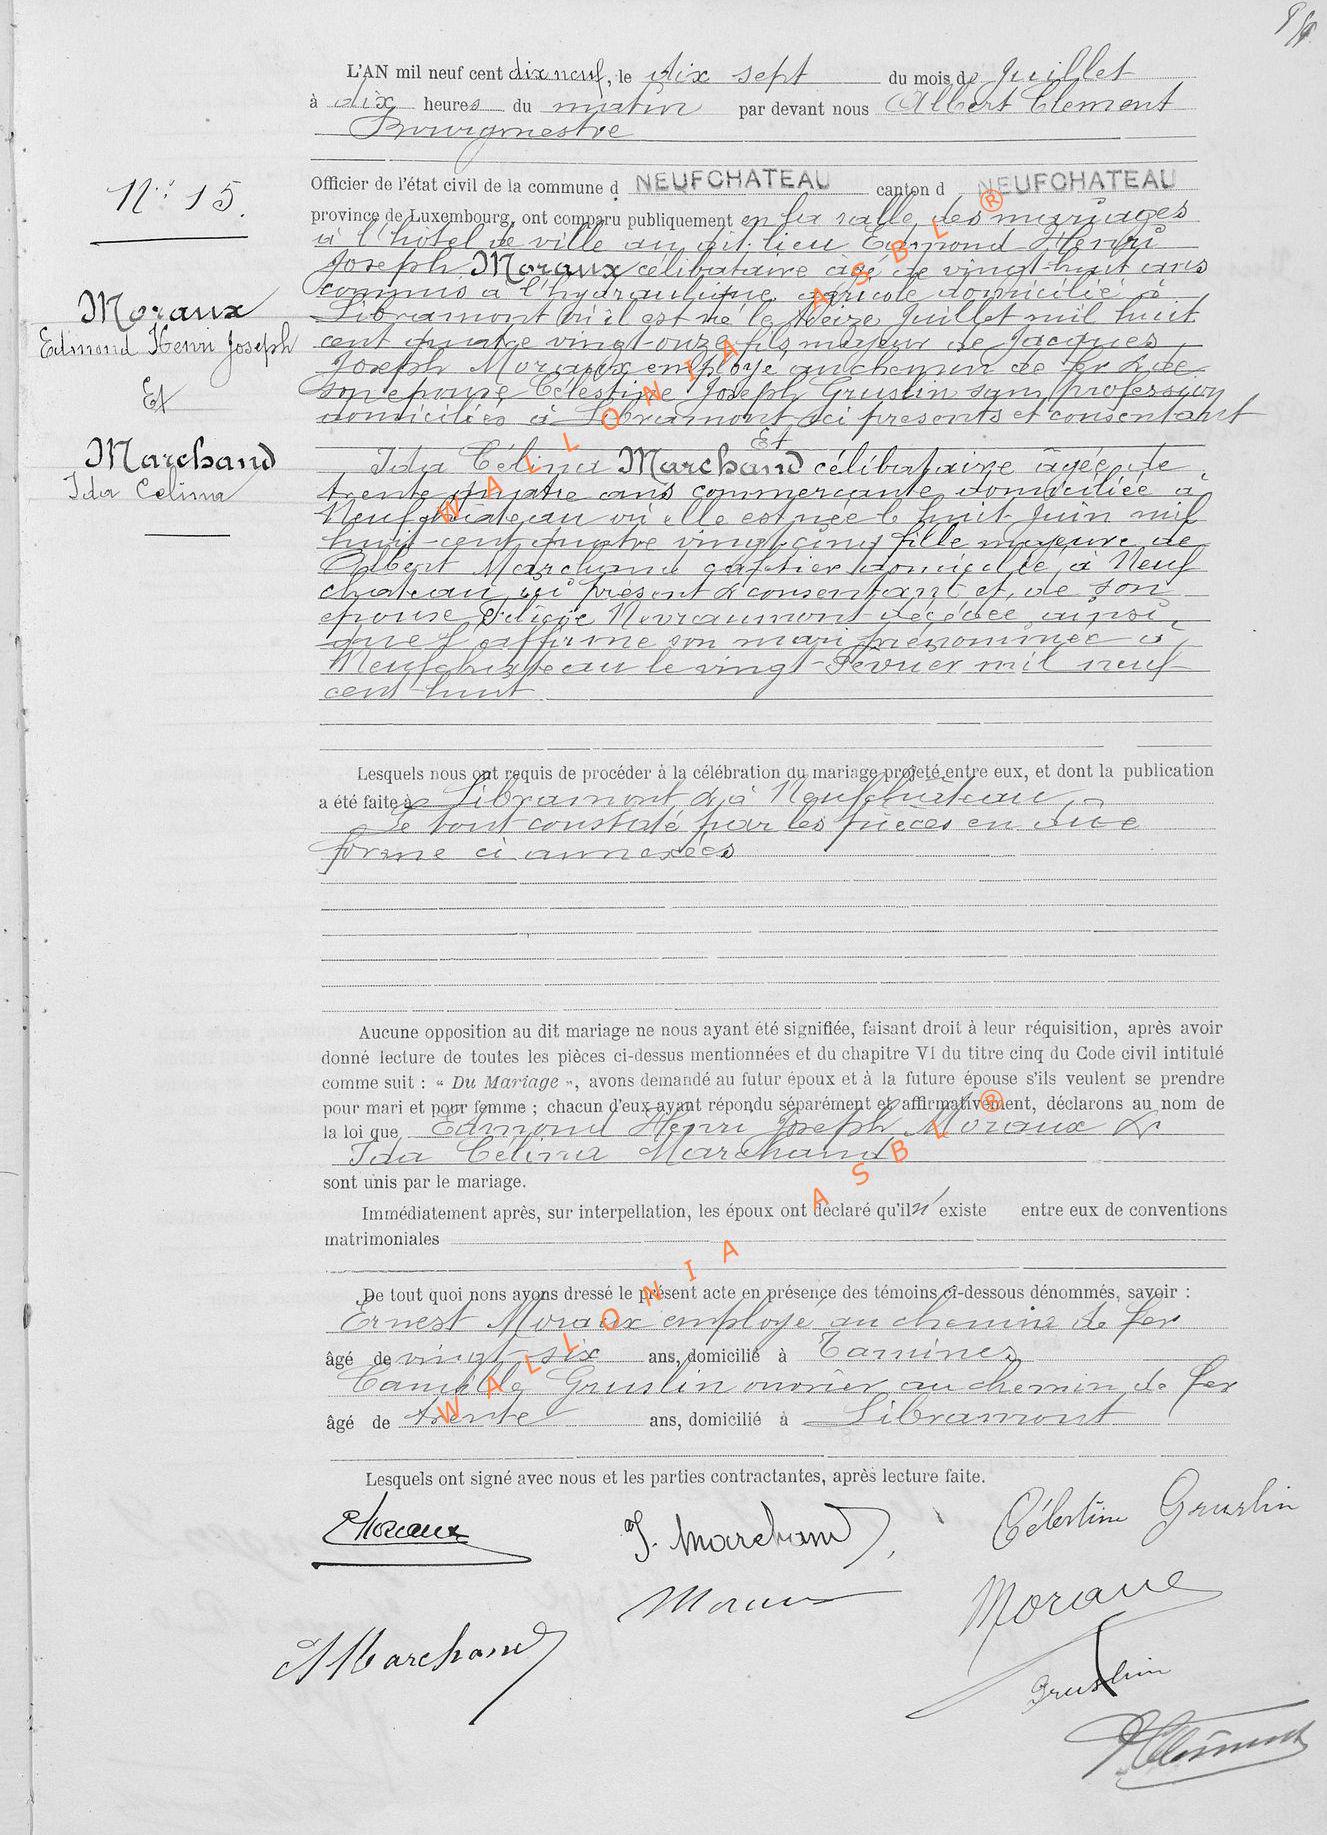 L'AN mil neuf cent dix neuf, le dix sept du mois de Juillet
à dix heures du matin par devant nous Albert Clement
Bourgmestre
Officier de l'état civil de la commune d NEUFCHATEAU canton d NEUFCHATEAU
province de Luxembourg, ont comparu publiquement en la salle des mariages
à l'hôtel de ville au dit lieu Edmond Henri
Joseph Moraux célibataire âgé de vingt-huit ans
commis à l'hydraulique agricole domicilié à
Libramont où il est né le seize Juillet mil huit
cent quatre vingt-onze fils majeur de Jacques
Joseph Moraux employé au chemin de fer & de
son epouse Célestine Joseph Gruslin sans profession
domiciliés à Libramont ici presents et consentant
Et
Ida Célina Marchand célibataire âgée de
trente quatre ans commerçante domiciliée à
Neufchâteau où elle est née le huit Juin mil
huit-cent quatre vingt cinq fille majeure de
Albert Marchand domicilié à Neuf
chateau ici présent & consentant et de son
epouse Nevraumont décédée ainsi
que l'affirme son mari prénommé à
Neufchateau le vingt-Février mil neuf
cent-huit
N° 15.
Moraux
Edmond Henri Joseph
Et
Marchand
Ida Celina
Lesquels nous ont requis de procéder à la célébration du mariage projeté entre eux, et dont la publication
a été faite à Libramont & à Neufchâteau
Le tout constaté par les pièces en due
forme ci annexées
Aucune opposition au dit mariage ne nous ayant été signifiée, faisant droit à leur réquisition, après avoir
donné lecture de toutes les pièces ci-dessus mentionnées et du chapitre VI du titre cinq du Code civil intitulé
comme suit : « Du Mariage », avons demandé au futur époux et à la future épouse s'ils veulent se prendre
pour mari et pour femme ; chacun d'eux ayant répondu séparément et affirmativement, déclarons au nom de
la loi que Edmond Henri Joseph Moraux &
Ida Célina Marchand
sont unis par le mariage.
Immédiatement après, sur interpellation, les époux ont déclaré qu'il n'existe entre eux de conventions
matrimoniales
De tout quoi nons avons dressé le présent acte en présence des témoins ci-dessous dénommés, savoir :
Ernest Moraux employé au chemin de fer
âgé de vingt-six ans, domicilié à Tamines
Camille Gruslin ouvrier au chemin de fer
âgé de trente ans, domicilié à Libramont
Lesquels ont signé avec nous et les parties contractantes, après lecture faite.
EMoraux
J. Marchand
Célestine Gruslin
Moraux
Moraux
AMarchand
Gruslin
AClément
WALLONIA ASBL ®
WALLONIA ASBL ®